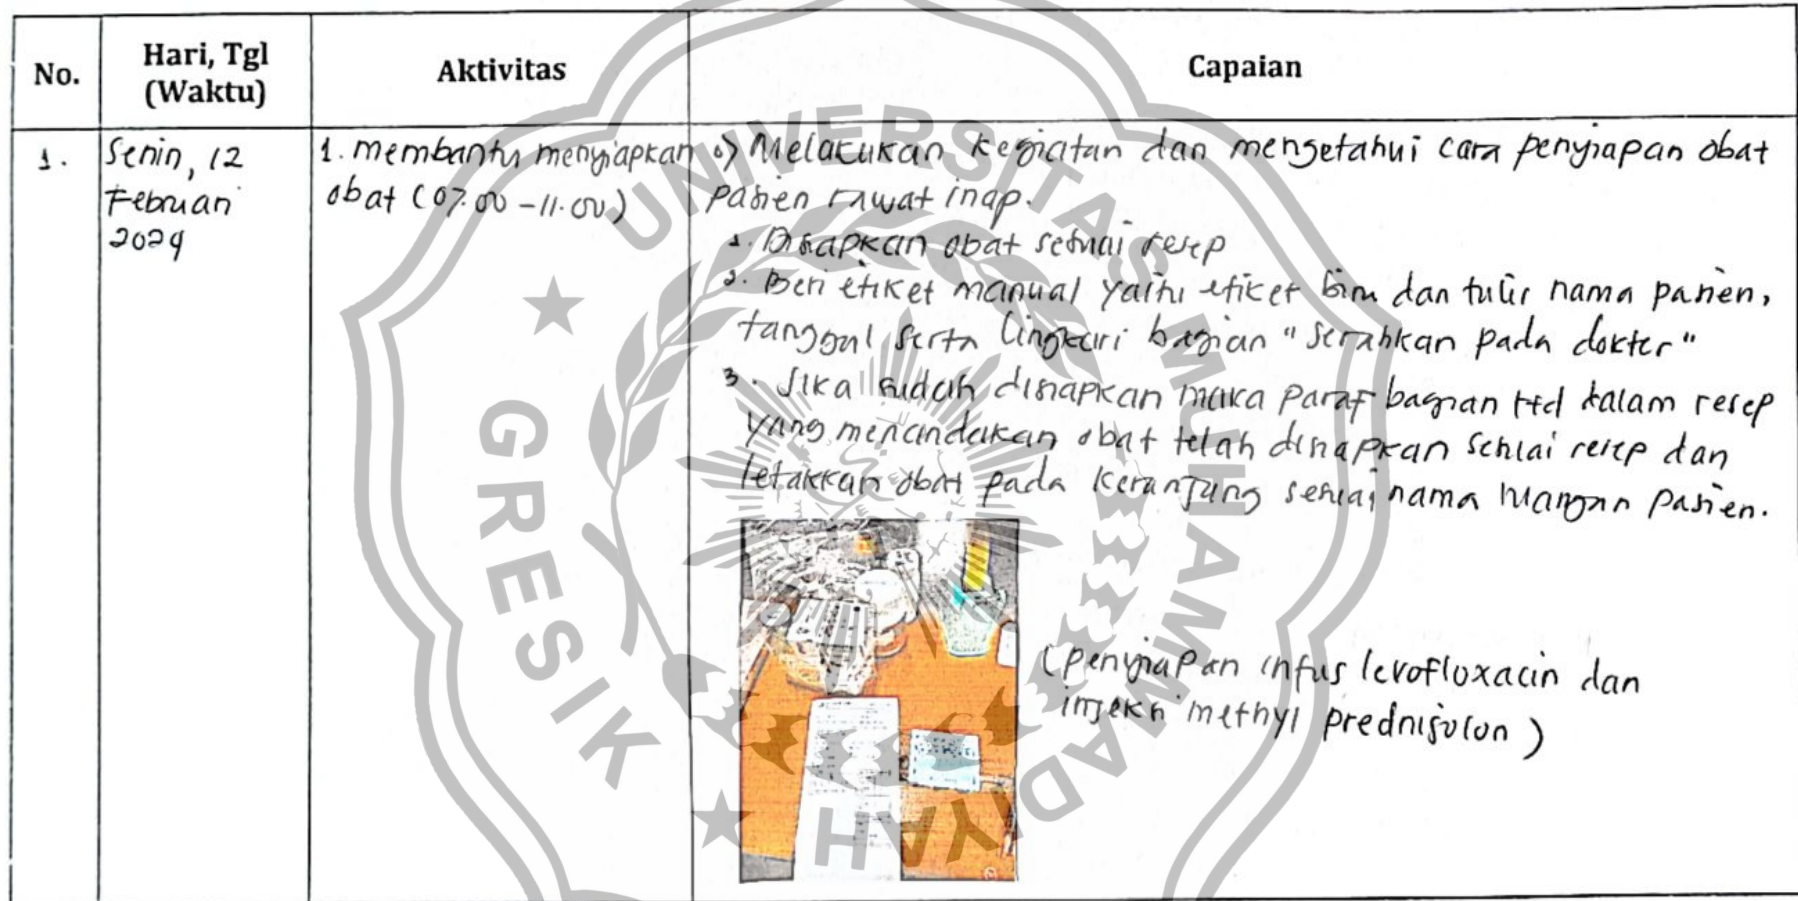 No.
Hari, Tgl
(Waktu)
Aktivitas
Capaian
1.
Senin, 12
Februari
2024
1. membantu menyiapkan
obat (07.00 - 11.00)
o) Melakukan kegiatan dan mengetahui cara penyiapan obat
pasien rawat inap.
1. Disiapkan obat sesuai resep
2. Beri etiket manual yaitu etiket biru dan tulis nama pasien,
tanggal serta lingkari bagian "serahkan pada dokter"
3. Jika sudah disiapkan maka paraf bagian ttd dalam resep
yang menandakan obat telah disiapkan sesuai resep dan
letakkan obat pada keranjang sesuai nama ruangan pasien.
(penyiapan infus levofloxacin dan
injeksi methyl prednisolon)
UNIVERSITAS MUHAMMADIYAH
GRESIK